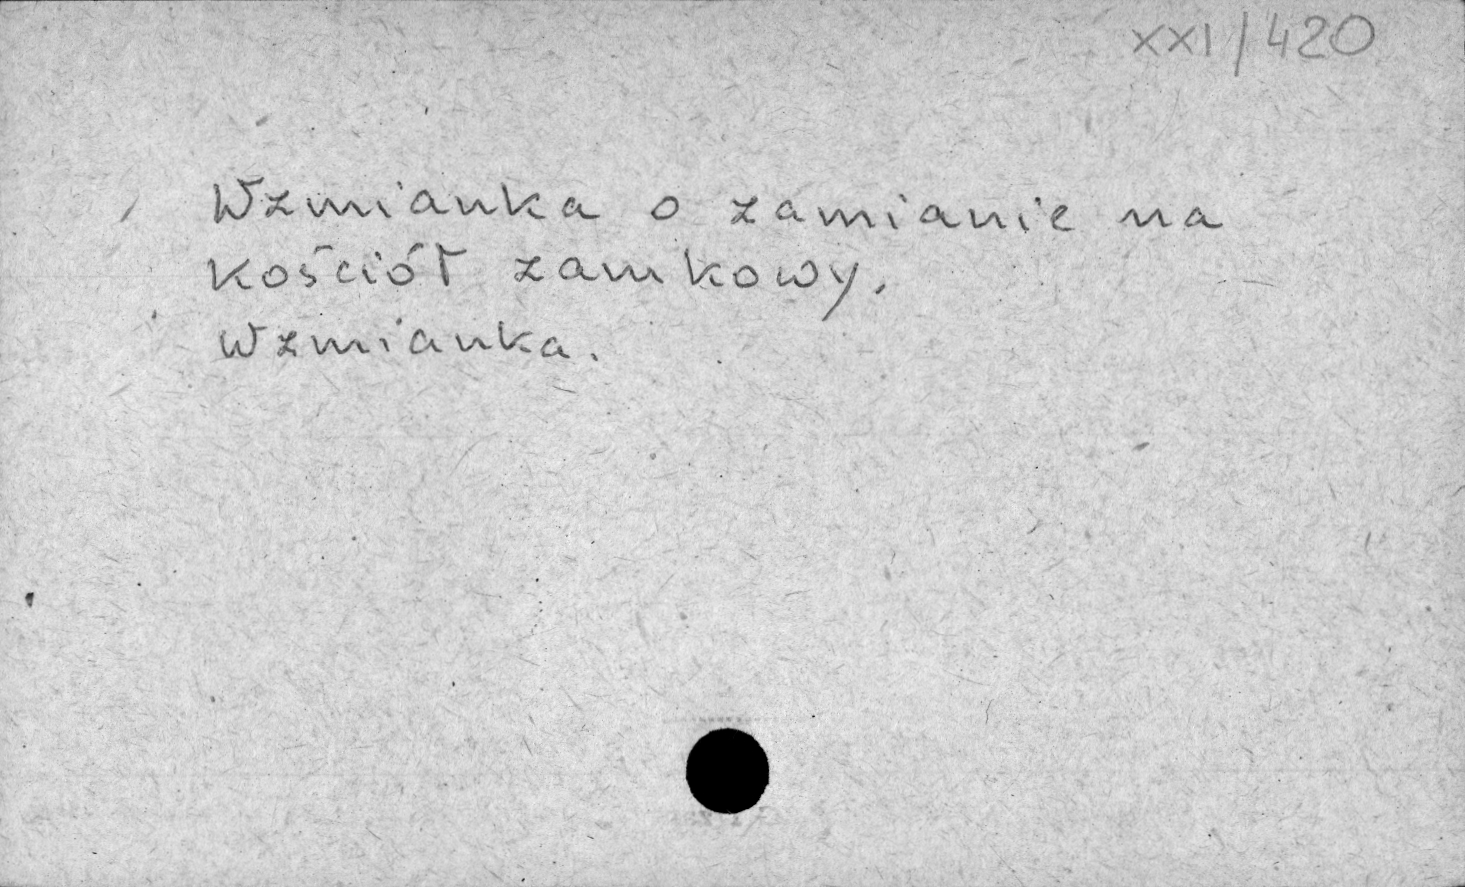 XXI/420
Wzmianka o zamianie na
kościół zamkowy.
Wzmianka.